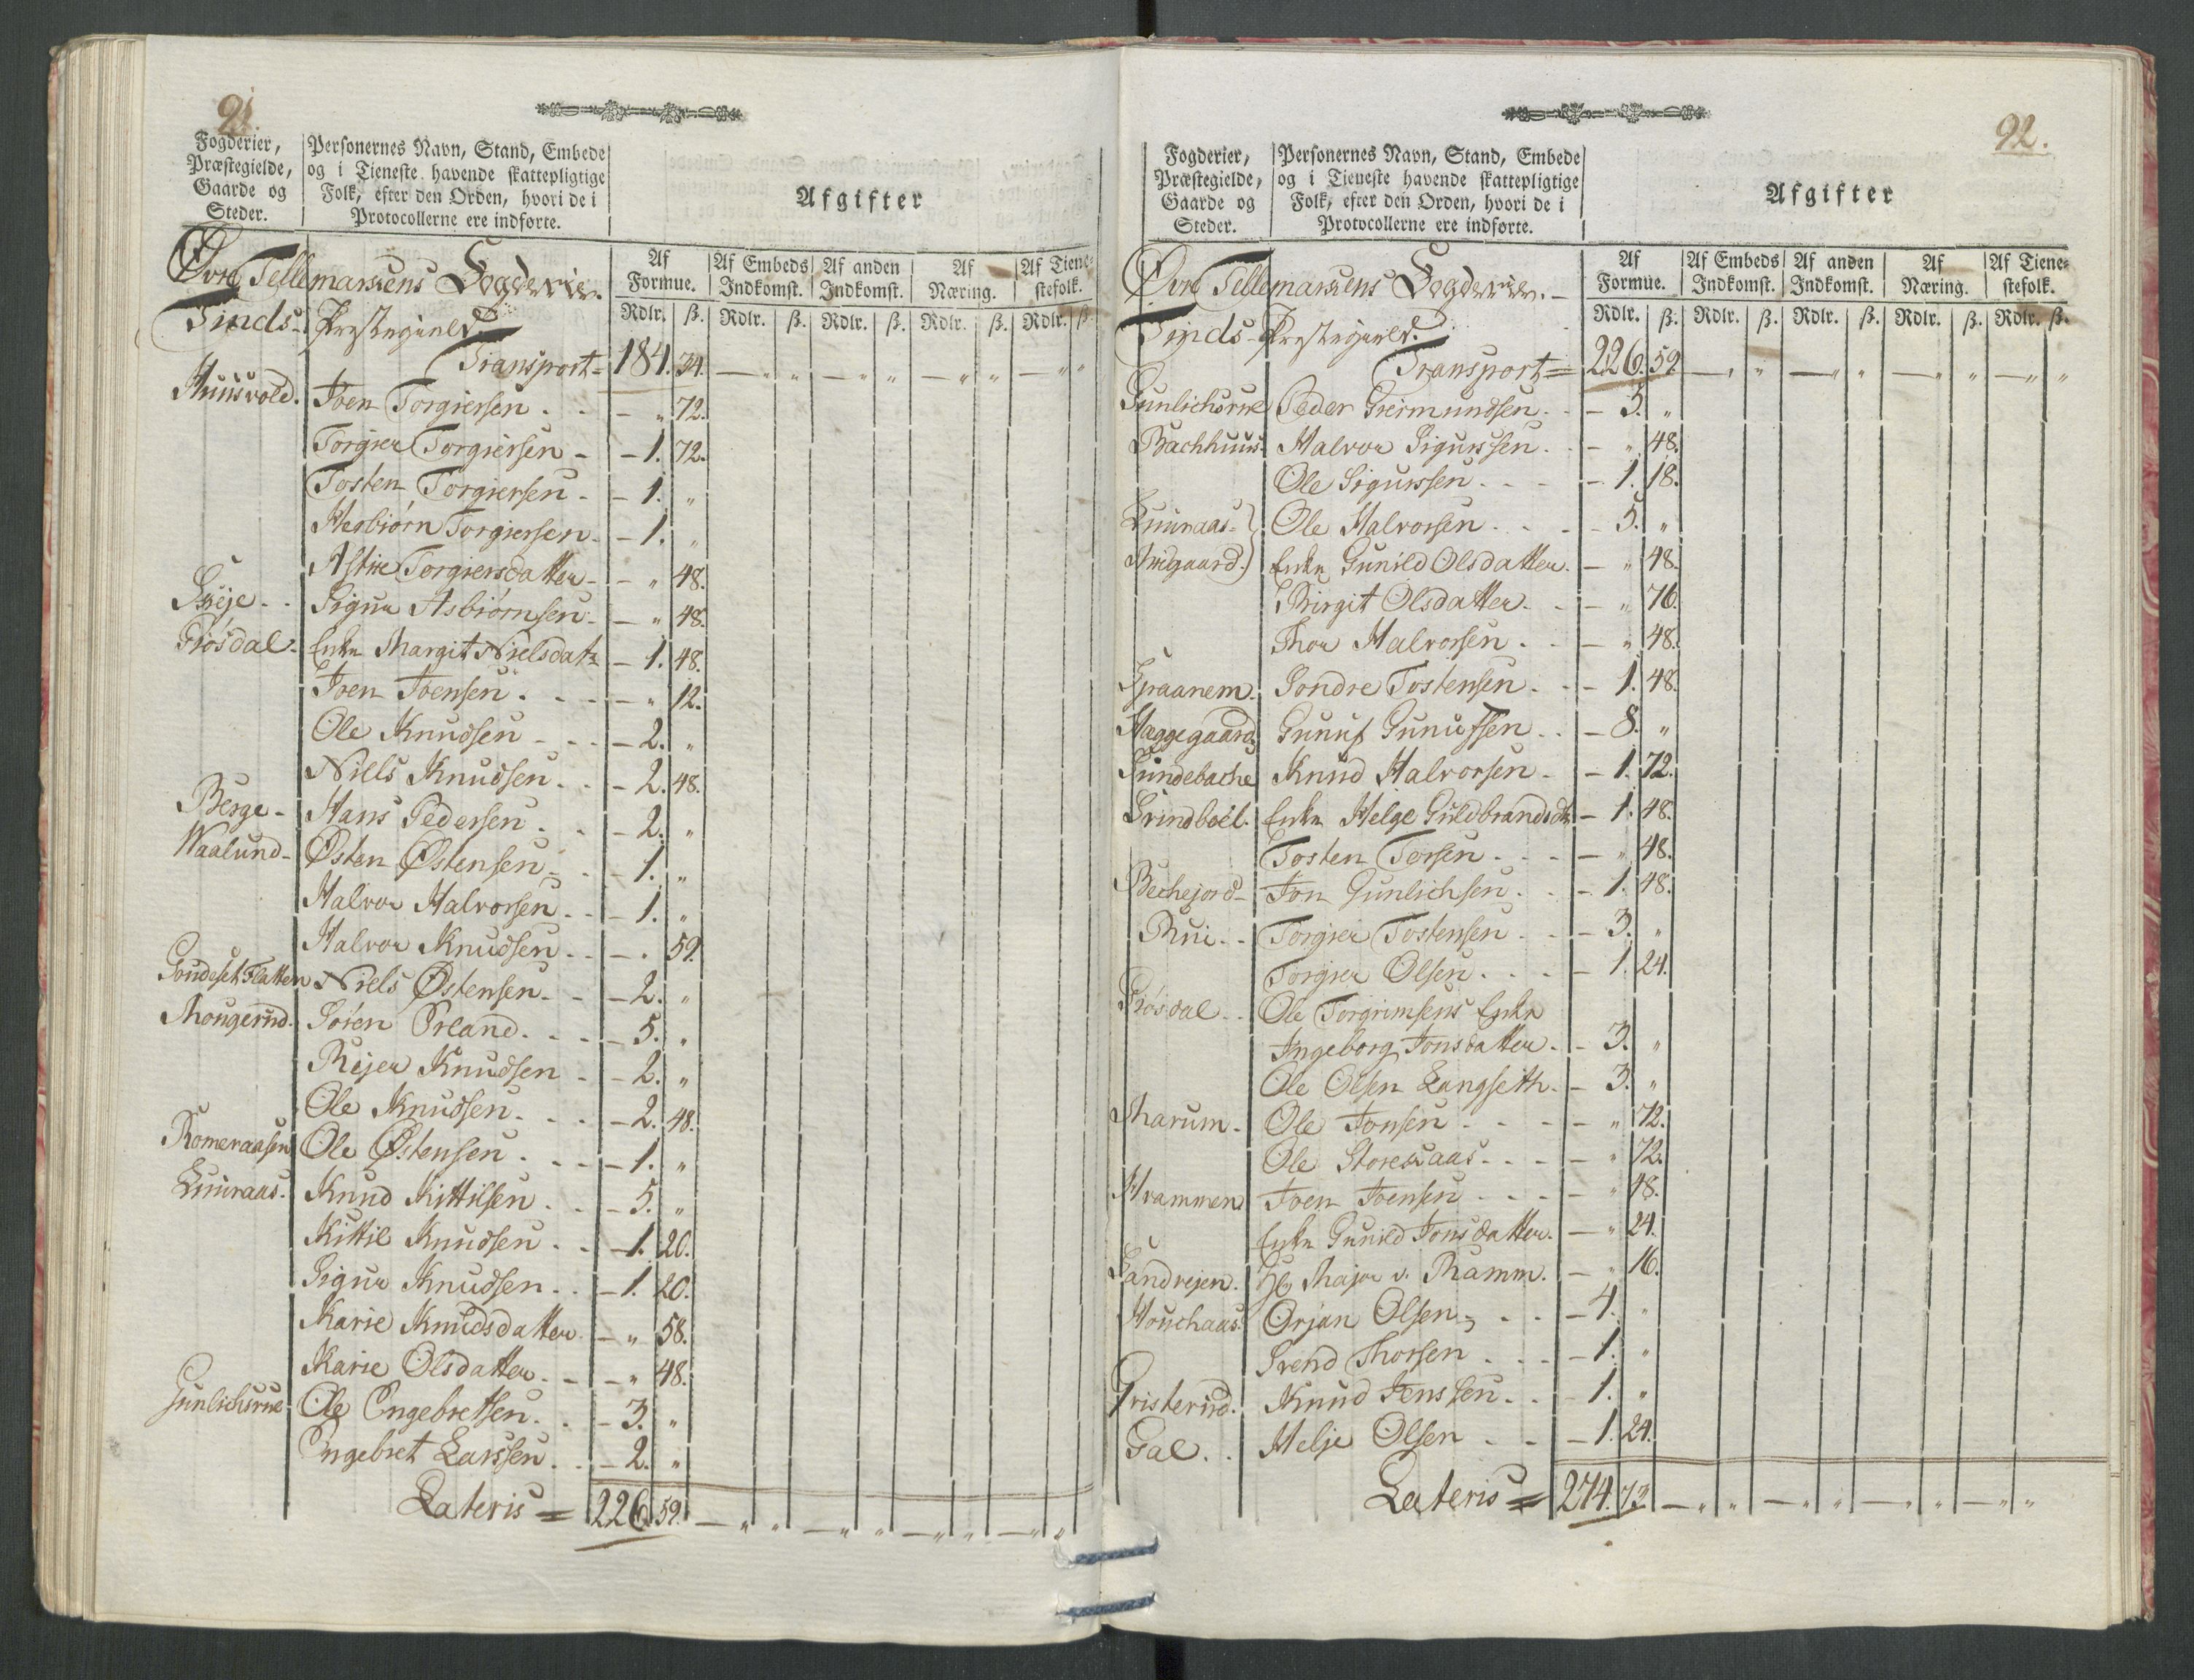 91.
Fogderier,
Præstegielde,
Gaarde og
Steder.
Personernes Navn, Stand, Embede
og i Tieneste havende skattepligtige
Folk, efter den Orden, hvori de i
Protocollerne ere indførte.
Afgifter
Øvre Tellemarkens Fogderie.
Tinds Præstegield.
Af Formue. Af Embeds Indkomst. Af anden Indkomst. Af Næring. Af Tienestefolk.
Rdlr. ß. Rdlr. ß. Rdlr. ß. Rdlr. ß. Rdlr. ß.
Transport 184. 34. — „ „ — „ „ — „ „ — „ „
Huusvold. Joen Torgiersen - „ 72.
Torgier Torgiersen - 1. 72.
Tosten Torgiersen - 1. „
Hesbiørn Torgiersen - 1. „
Torgiersdatter - „ 48.
Sigur Asbiørnsen - „ 48.
Røsdal. Enke Margit Nielsdatr - 1. 48.
Joen Joensen - „ 12.
Ole Knudsen - 2. „
Niels Knudsen - 2. 48.
Berge - Hans Pedersen - 2. „
Waalund - Østen Østensen - 1. „
Halvor Halvorsen - 1. „
Halvor Knudsen - . 59.
Gondeset Flatten Niels Østensen - 2. „
Mougerud. Søren Orland - 5. „
Rejer Knudsen - 2. „
Ole Knudsen - 2. 48.
Romeraasen Ole Østensen - 1. „
Luuraas. Knud Kittilsen - 5. „
Kittil Knudsen - 1. 20.
Sigur Knudsen - 1. 20.
Karie Knudsdatter - „ 58.
Karie Olsdatter - „ 48.
Gunlichsrue Ole Engebretsen - 3. „
Engebret Larssen - 2. „
Lateris = 226. 59. — „ „ — „ „ — „ „ — „ „
92.
Fogderier,
Præstegielde,
Gaarde og
Steder.
Personernes Navn, Stand, Embede
og i Tieneste havende skattepligtige
Folk, efter den Orden, hvori de i
Protocollerne ere indførte.
Afgifter
Øvre Tellemarkens Fogderie.
Tinds Præstegield.
Af Formue. Af Embeds Indkomst. Af anden Indkomst. Af Næring. Af Tienestefolk.
Rdlr. ß. Rdlr. ß. Rdlr. ß. Rdlr. ß. Rdlr. ß.
Transport = 226. 59. — „ „ — „ „ — „ „ — „ „
Gunlichsrue Peder Giermundsen - 5. „
Bachhuus Halvor Sigurssen - „ 48.
Ole Sigurssen - 1. 18.
Luuraas Ole Halvorsen - 5. „
Enke Gunild Olsdatter - „ 48.
Birgit Olsdatter - „ 76.
Thor Halvorsen - „ 48.
Spaanem. Sondre Tostensen - 1. 48.
Haggegaard Gunuf Gunufsen - 8. „
Sundebache Knud Halvorsen - 1. 72.
Grindboel. Enke Helge Guldbrandsdr - 1. 48.
Tosten Torsen - „ 48.
Bechejord Jon Gunlichsen - 1. 48.
Rui Torgier Tostensen - 3. „
Torgier Olsen - 1. 24.
Røsdal Ole Torgrimsens Enke
Ingeborg Jonsdatter - 3. „
Ole Olsen Langseth - 3. „
Marum Ole Jonsen - „ 72.
Ole - „ 72.
Hvammen Joen Joensen - „ 48.
Enke Gunild Jonsdatter - „ 24.
Sandvejen. Hr Major v. Ramm. - „ 16.
Houchaas. Ørjan Olsen - 4. „
Svend Thorsen - 1. „
Qvisterud. Knud Jenssen - 1. „
Gal Helje Olsen - 1. 24.
Lateris = 274. 73. — „ „ — „ „ — „ „ — „ „